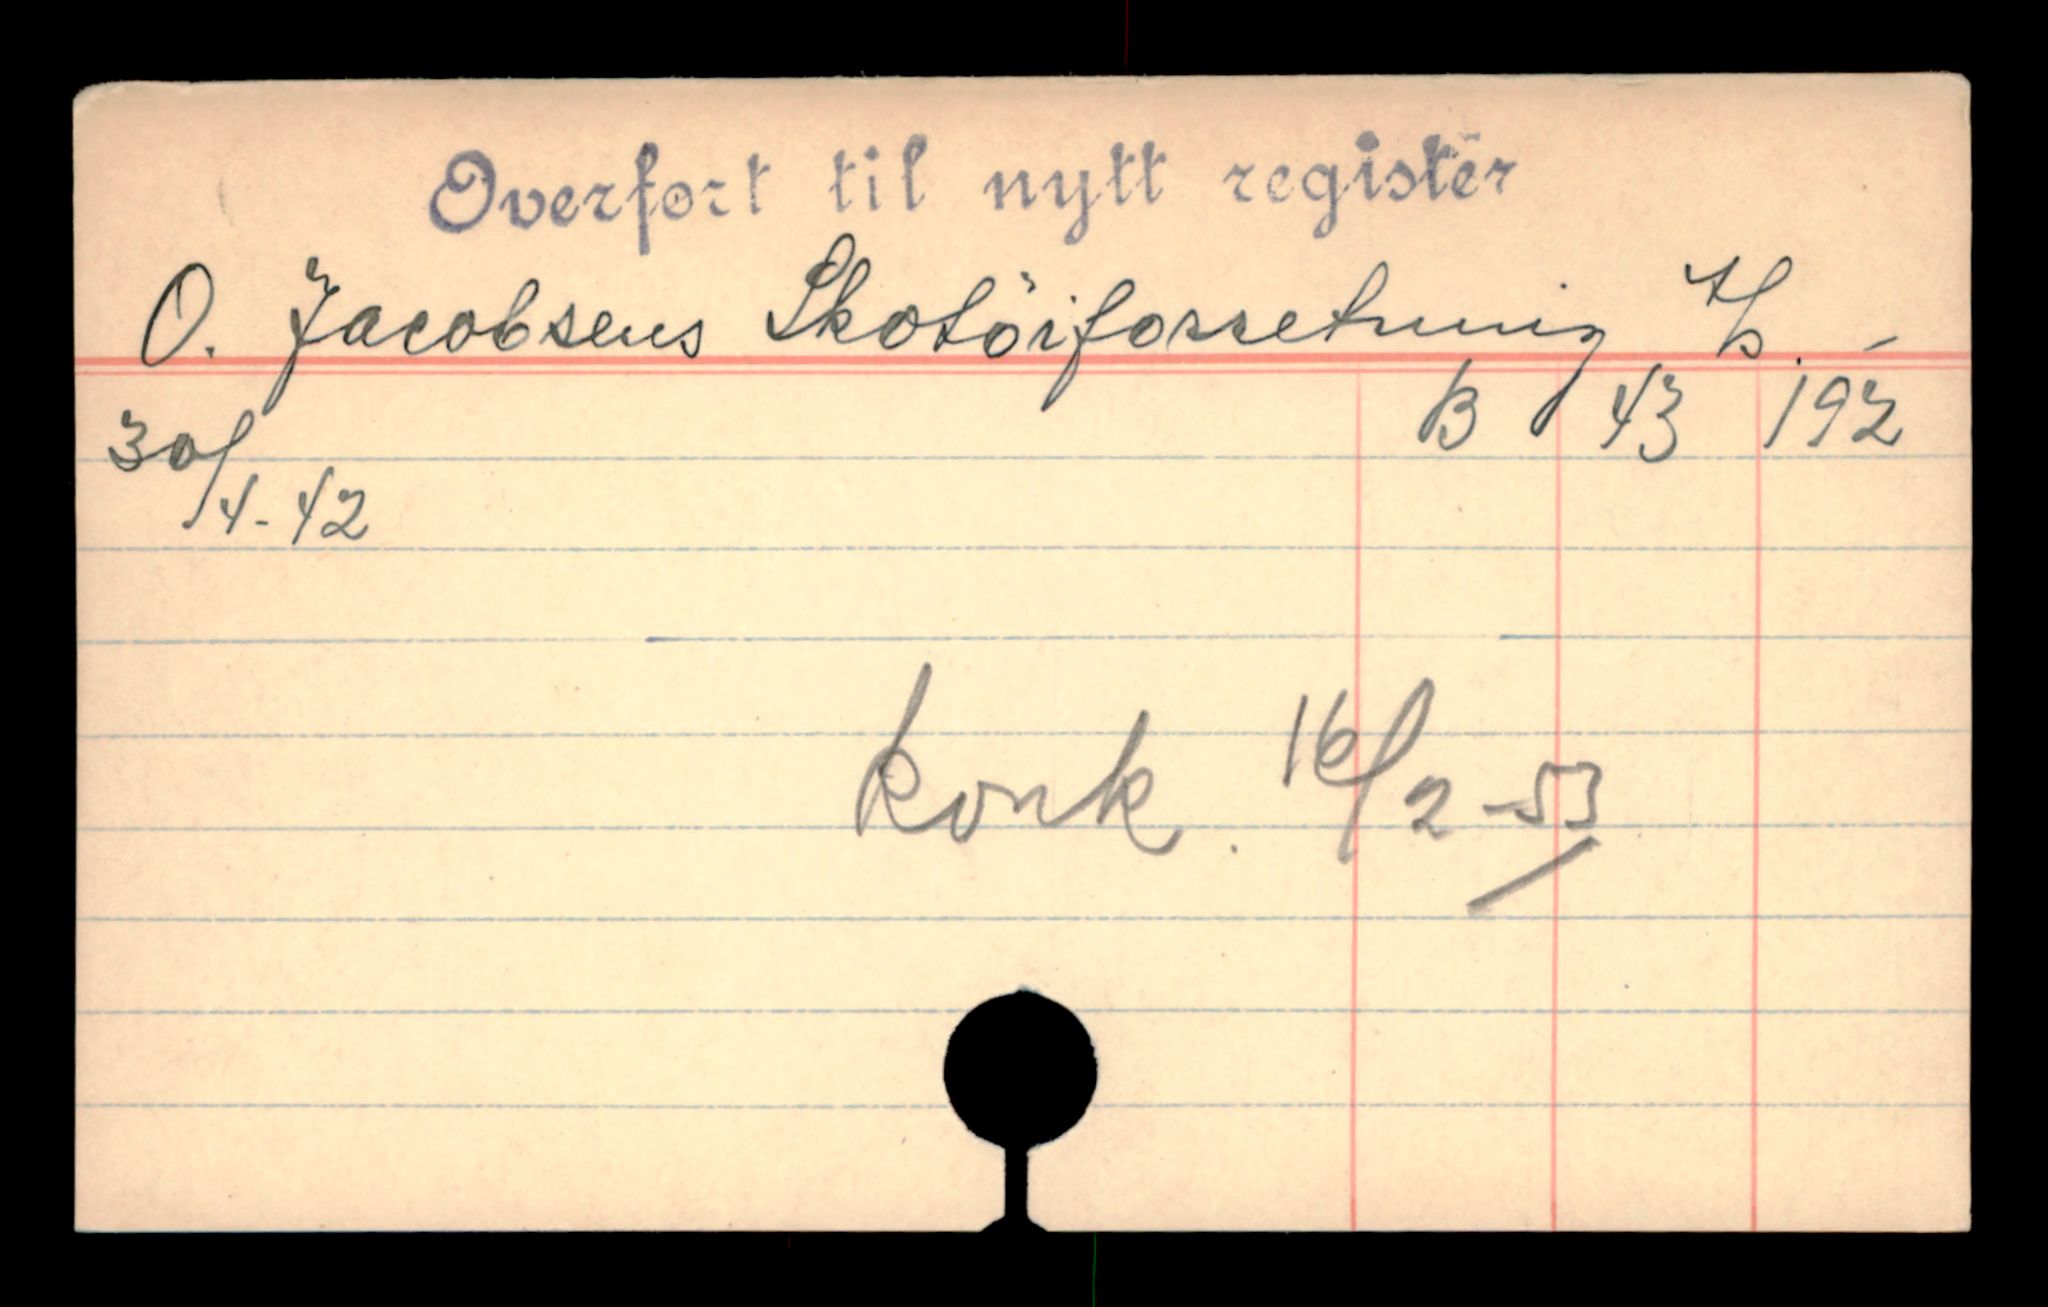 Overført til nytt register
O. Jacobsens Skotöiforretning A/S. -
B 43 192
30/4-42
konk. 16/2-53